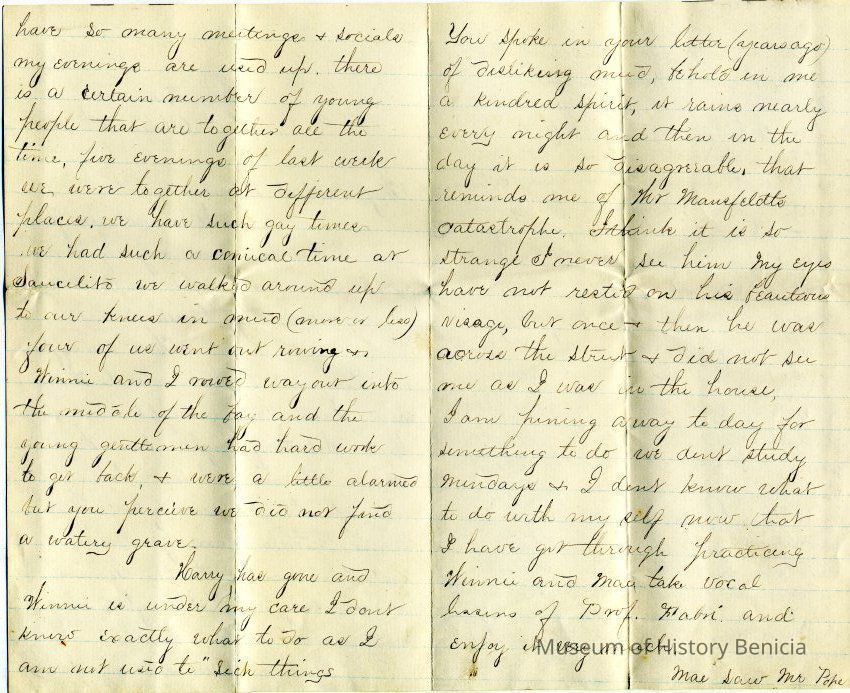 have so many meetings & socials
my evenings are used up. there
is a certain number of young
people that are together all the
time, five evenings of last week
we were together at different
places. we have such gay times
we had such a comical time at
Saucelito we walked around up
to our knees in mud (more or less)
four of us went out rowing &
Winnie and I rowed way out into
the middle of the bay and the
young gentlemen had hard work
to get back, & were a little alarmed
but you percieve we did not find
a watery grave.
Harry has gone and
Winnie is under my care I dont
know exactly what to do as I
am not used to "sich things
You spoke in your letter (years ago)
of disliking mud, behold in me
a kindred spirit, it rains nearly
every night and then in the
day it is so disagreable, that
reminds me of Mr Mansfeldts
catastrophe. I think it is so
strange I never see him My eyes
have not rested on his beauteous
visage, but once & then he was
across the street & did not see
me as I was in the house,
I am pining away to day for
something to do we dont study
Mundays & I dont know what
to do with my self now that
I have got through practicing
Winnie and Mae take vocal
lessons of Prof. Fabri. and
enjoy it very much
Mae saw Mr Pope
Museum of History Benicia